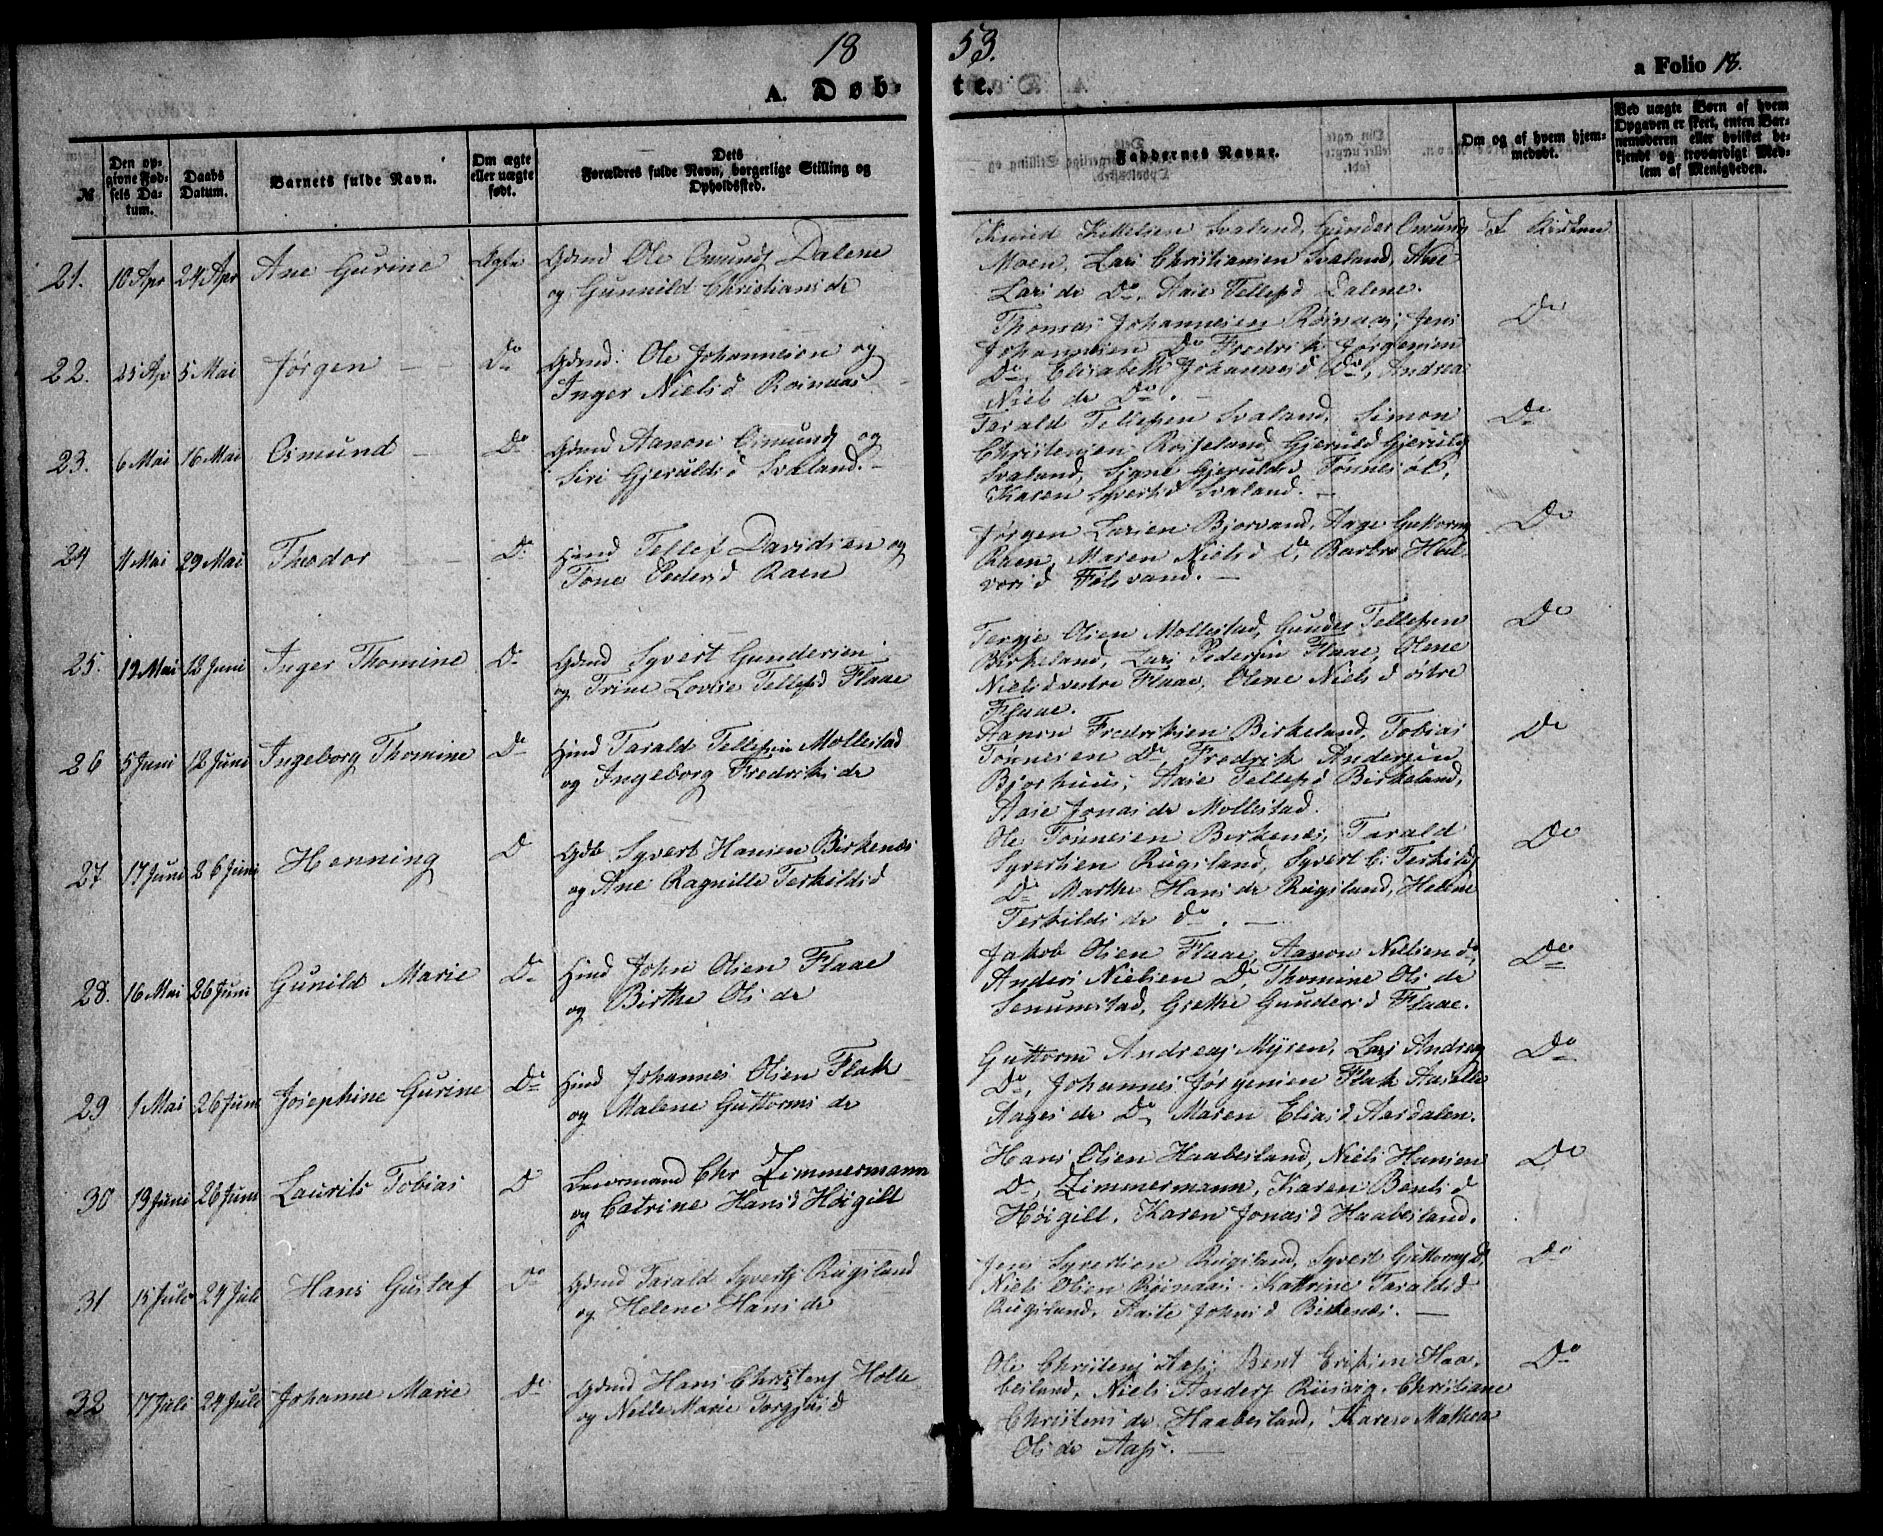 18 53.
A. Døb- te.
a Folio 18.
№
Den opgivne Fødsels Datum.
Daabs Datum.
Barnets fulde Navn.
Om ægte eller uægte født.
Dets Forældres fulde Navn, borgerlige Stilling og Opholdssted.
Faddernes Navne.
Om og af hvem hjemmedøbt.
Ved uægte Børn af hvem Opgaven er skeet, enten Barnemoderen eller hvilket bekjendt og troværdigt Medlem af Menigheden.
21. 10 Apr 24 Apr Ane Gurine Ægte Gdmd Ole Osmunds Dalene
og Gunnild Christians dr
Knud Kittelsen Svaland, Gunder Osmunds
Moen, Lars Christiansen Svaland, Ane
Lars dr Do, Aase Tellefsd Dalene.
I Kirken
22. 25 Ap 5 Mai Jørgen Do Gdmd: Ole Johannesen og
Inger Nielsd Roinaas
Thomas Johannesen Roinaas, Jens
Johannesen Do Fredrik Jørgensen
Do, Elisabeth Johannesd Do, Andrea
Niels dr Do.
Do
23. 6 Mai 16 Mai Osmund Do Gdmd Aanon Osmunds og
Siri Gjeruldsd Svaland.
Tarald Tellefsen Svaland, Simon
Christensen Rosseland, Gjeruld Gjerulds
Svaland, Signe Gjeruldsd Tønnesøl,
Karen Syvertsd Svaland.
Do
24 11 Mai 29 Mai Theodor Do Hmd Tellef Davidsen og
Tone Pedersd Raen
Jørgen Larsen Bjorvand, Aage Guttorms
Raen, Maren Nielsd Do, Barbro Hal
vorsd Føls vand.
Do
25. 12 Mai 12 Juni Inger Thomine Do Gdmd Syvert Gundersen
og Trine Lovise Tellefsd Flaae
Tergje Olsen Mollestad, Gunder Tellefsen
Birkeland, Lars Pedersen Flaae, Olene
Nielsd vestre Flaae, Olene Niels d østre
Flaae.
Do
26 5 Juni 12 Juni Ingeborg Thomine Do Hmd Tarald Tellefsen Mollestad
og Ingeborg Fredriks dr
Aanon Fredriksen Birkeland, Tobias
Tønnesen Do, Fredrik Andersen
Bjorhuus, Aase Tellefsd Birkeland,
Aase Jonas dr Mollestad.
Do
27 17 Juni 26 Juni Henning D Syvert Hansen Birkenes
og Ane Ragnille Terkildsd
Ole Tønnesen Berkenes, Tarald
Syvertsen Rugsland, Syvert C. Terkilds
Do Marthe Hans dr Rugsland, Helene
Terkilds dr do.
Do
28. 16 Mai 26 Juni Gunild Marie Do Hmd John Olsen Flaae
og Birthe Ols dr
Jakob Olsen Flaae, Aanon Nielsen do,
Anders Nielsen Do, Thomine Ols dr
Senumstad, Grethe Gundersd Flaae.
Do
29 1 Mai 26 Juni Josephine Gurine Do Hmd Johannes Olsen Flak
og Malene Guttorms dr
Guttorm Andreas Myren, Lars Andreas
Do, Johannes Jørgensen Flak Aaselle
Aages dr Do, Maren Eliasd Aardalen.
Do
30 19 Juni 26 Juni Laurits Tobias D Chr Zimmermann
og Catrine Hansd Høigilt
Hans Olsen Haabesland, Niels Hansen
Do, Zimmermann, Karen Bents d
Høigilt, Karen Jonasd Haabesland.
Do
31 15 Juli 24 Juli Hans Gustaf Do Gdmd Tarald Syverts Rugsland
og Helene Hans dr
Jens Syvertsen Rugsland, Syvert Guttorms Do,
Niels Olsen Roinaas Kathrine Taraldsd
Rugsland, Aaste Johnsd Birkenes.
Do
32 17 Juli 24 Juli Johanne Marie Do Gdmd Hans Christens Holte
og Nelle Marie Torgjusd
Ole Christens Aas, Bent Eriksen Haa-
besland, Niels Anders Risvig, Christiane
Christens dr Haabesland, Karen Mathea
Ols dr Aas.
Do